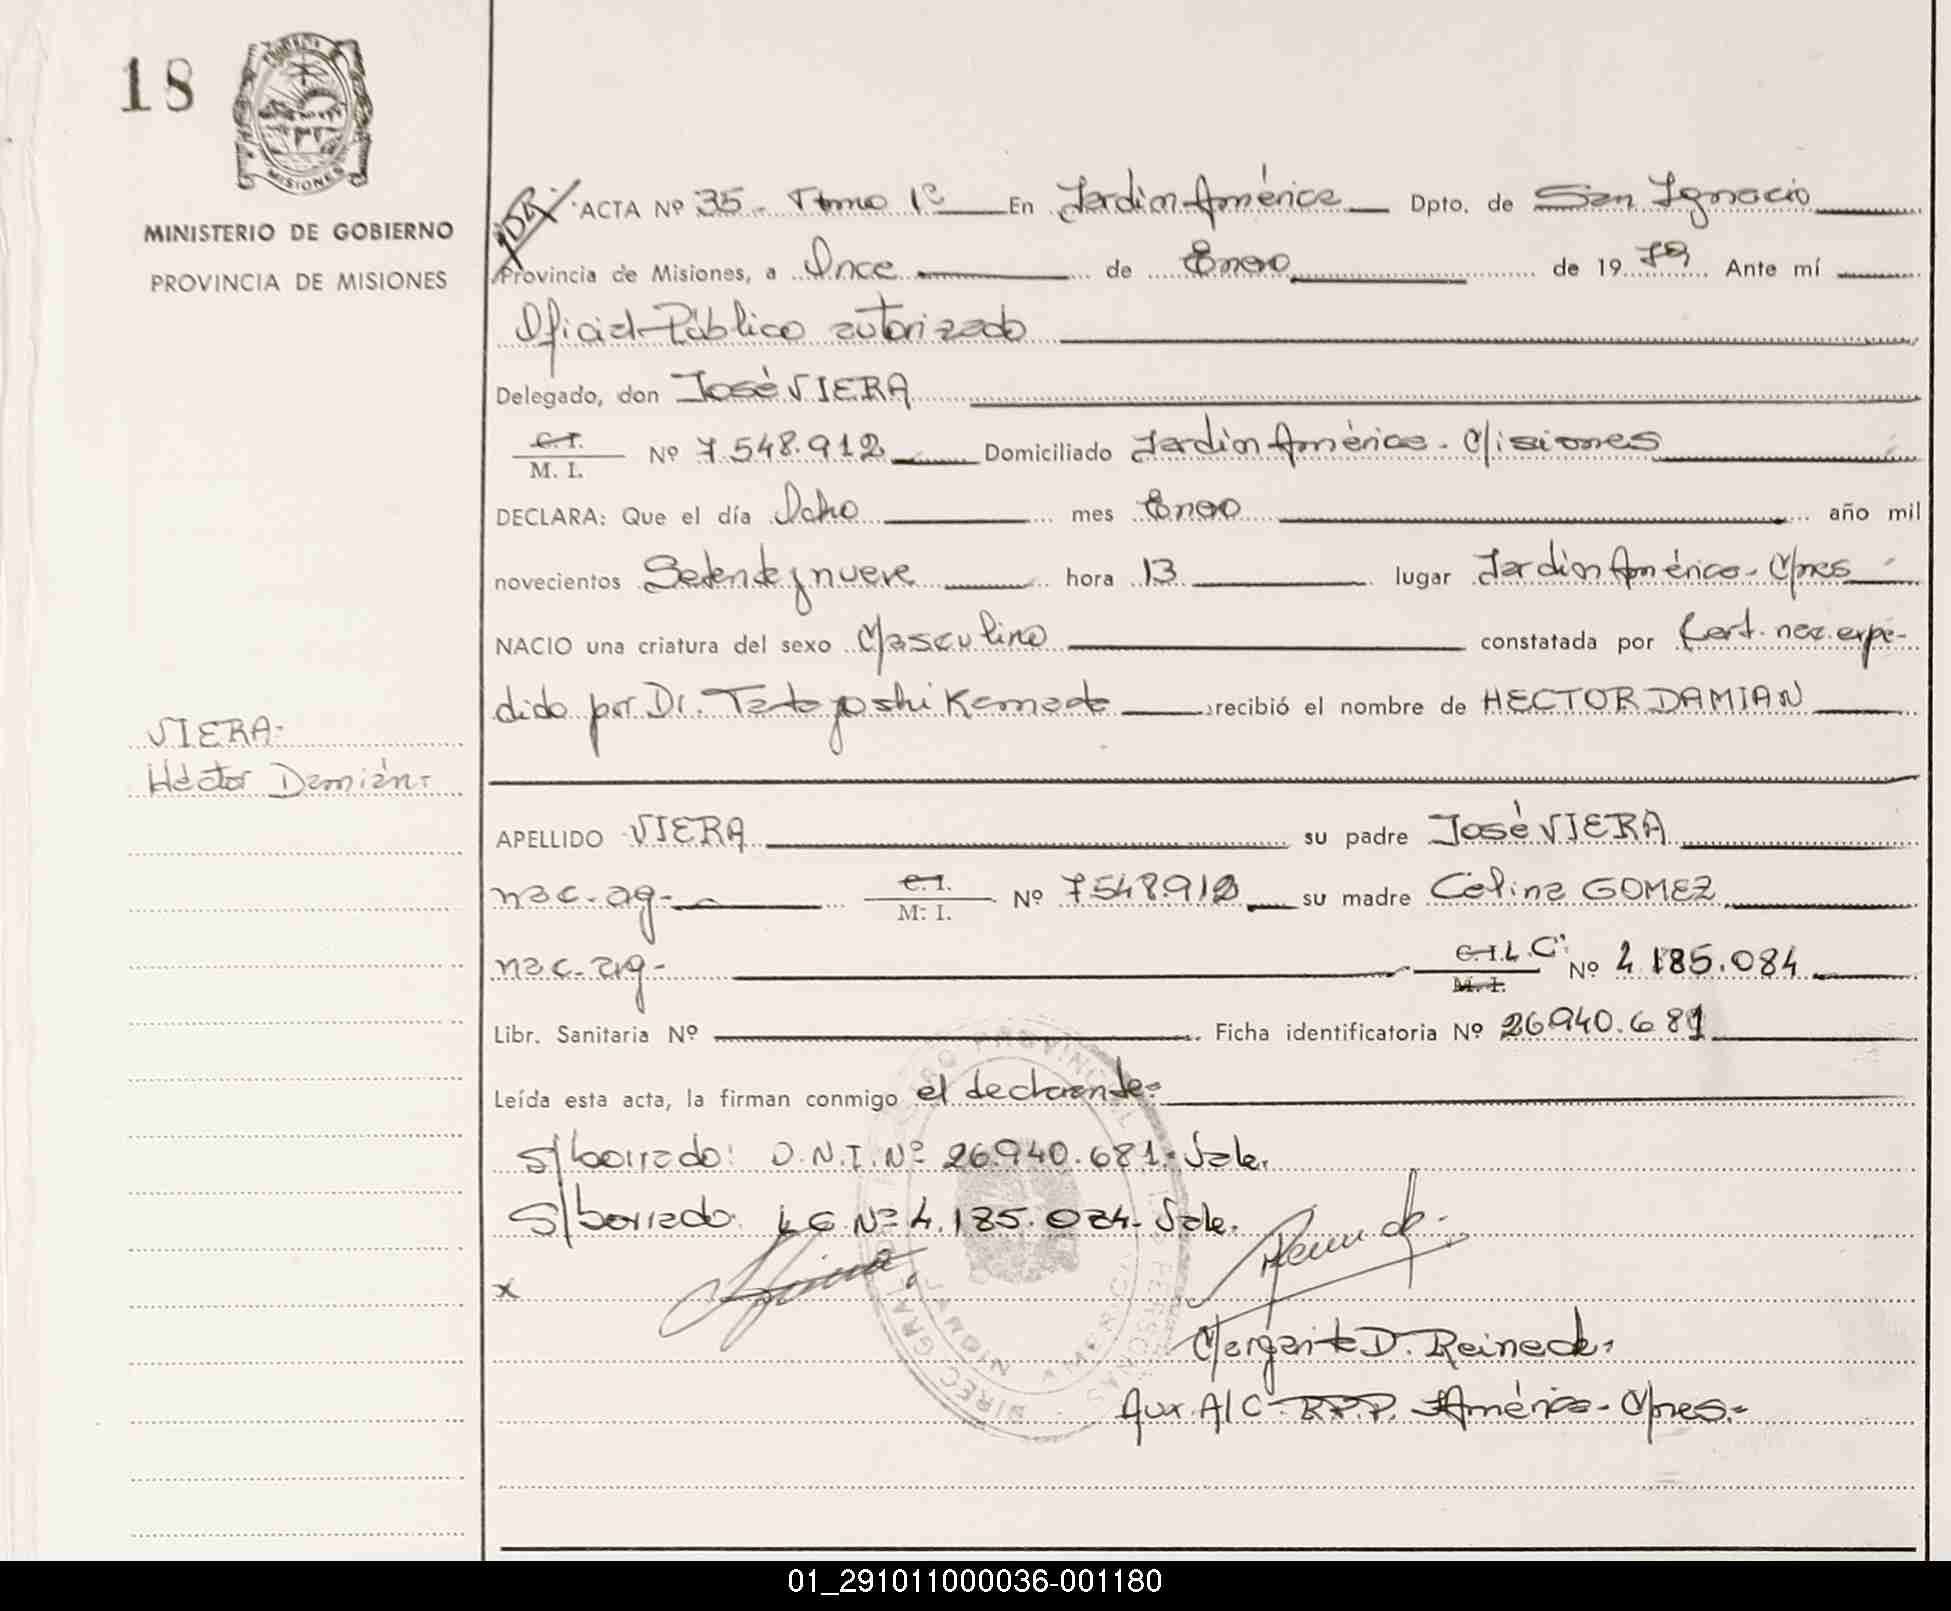 18
MISIONES
MINISTERIO DE GOBIERNO
PROVINCIA DE MISIONES
VIERA-
Héctor Damián-
IDA
ACTA Nº 35- Tomo 1º En Jardín América Dpto. de San Ignacio
Provincia de Misiones, a Once de Enero de 1979 Ante mí
Oficial Público autorizado
Delegado, don José VIERA
C. I.
M. I. Nº 7.548.912 Domiciliado Jardín América- Misiones
DECLARA: Que el día Ocho mes Enero año mil
novecientos Setenta y nueve hora 13 lugar Jardín América- Mnes
NACIO una criatura del sexo Masculino constatada por Cert. nac. expe-
dido por Dr. Tatayoshi Kamada recibió el nombre de HECTOR DAMIAN
APELLIDO VIERA su padre José VIERA
nac. arg- C. I. M. I. Nº 7548.912 su madre Celina GOMEZ
nac. arg- C. I. L. C. M. I. Nº 4.185.084
Libr. Sanitaria Nº Ficha identificatoria Nº 26.940.681
Leída esta acta, la firman conmigo el declarante-
S/borrado: D.N.I. Nº 26.940.681- Vale.
S/borrado: L C. Nº 4.185.084- Vale.
x
Margarita D. Reineck.
Aux. A/C- R.P.P. J. América- Mnes.-
DIREC. GRAL. REGISTRO PROVINCIAL PERSONAS
JARDIN AMERICA
01_291011000036-001180